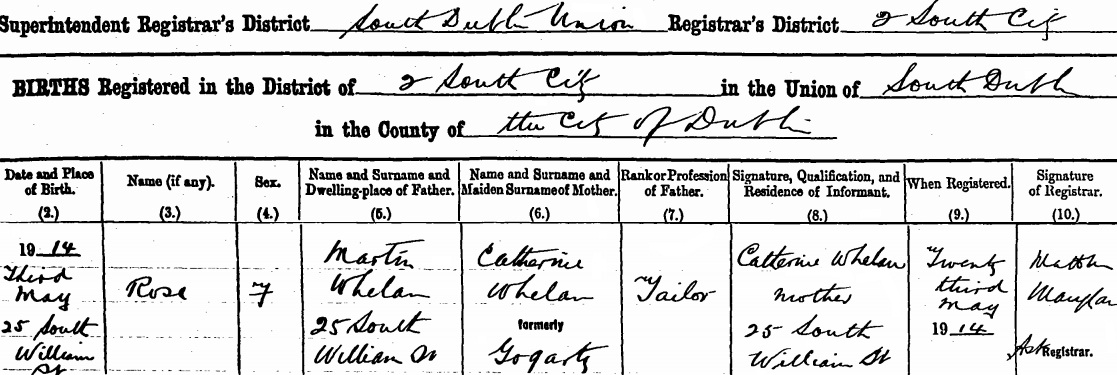 Superintendent Registrar's District South Dublin Union Registrar's District 2 South City
BIRTHS Registered in the District of 2 South City in the Union of South Dublin
in the County of the City of Dublin
Date and Place of Birth. Name (if any). Sex. Name and Surname and Dwelling-place of Father. Name and Surname and Maiden Surname of Mother. Rank or Profession of Father. Signature, Qualification, and Residence of Informant. When Registered. Signature of Registrar.
(2.) (3.) (4.) (5.) (6.) (7.) (8.) (9.) (10.)
1914 Martin Catherine Catherine Whelan Twenty
Third May Rose F Whelan Whelan Tailor mother third May
25 South 25 South formerly 25 South 1914
William St William St Gogarty William St Registrar.